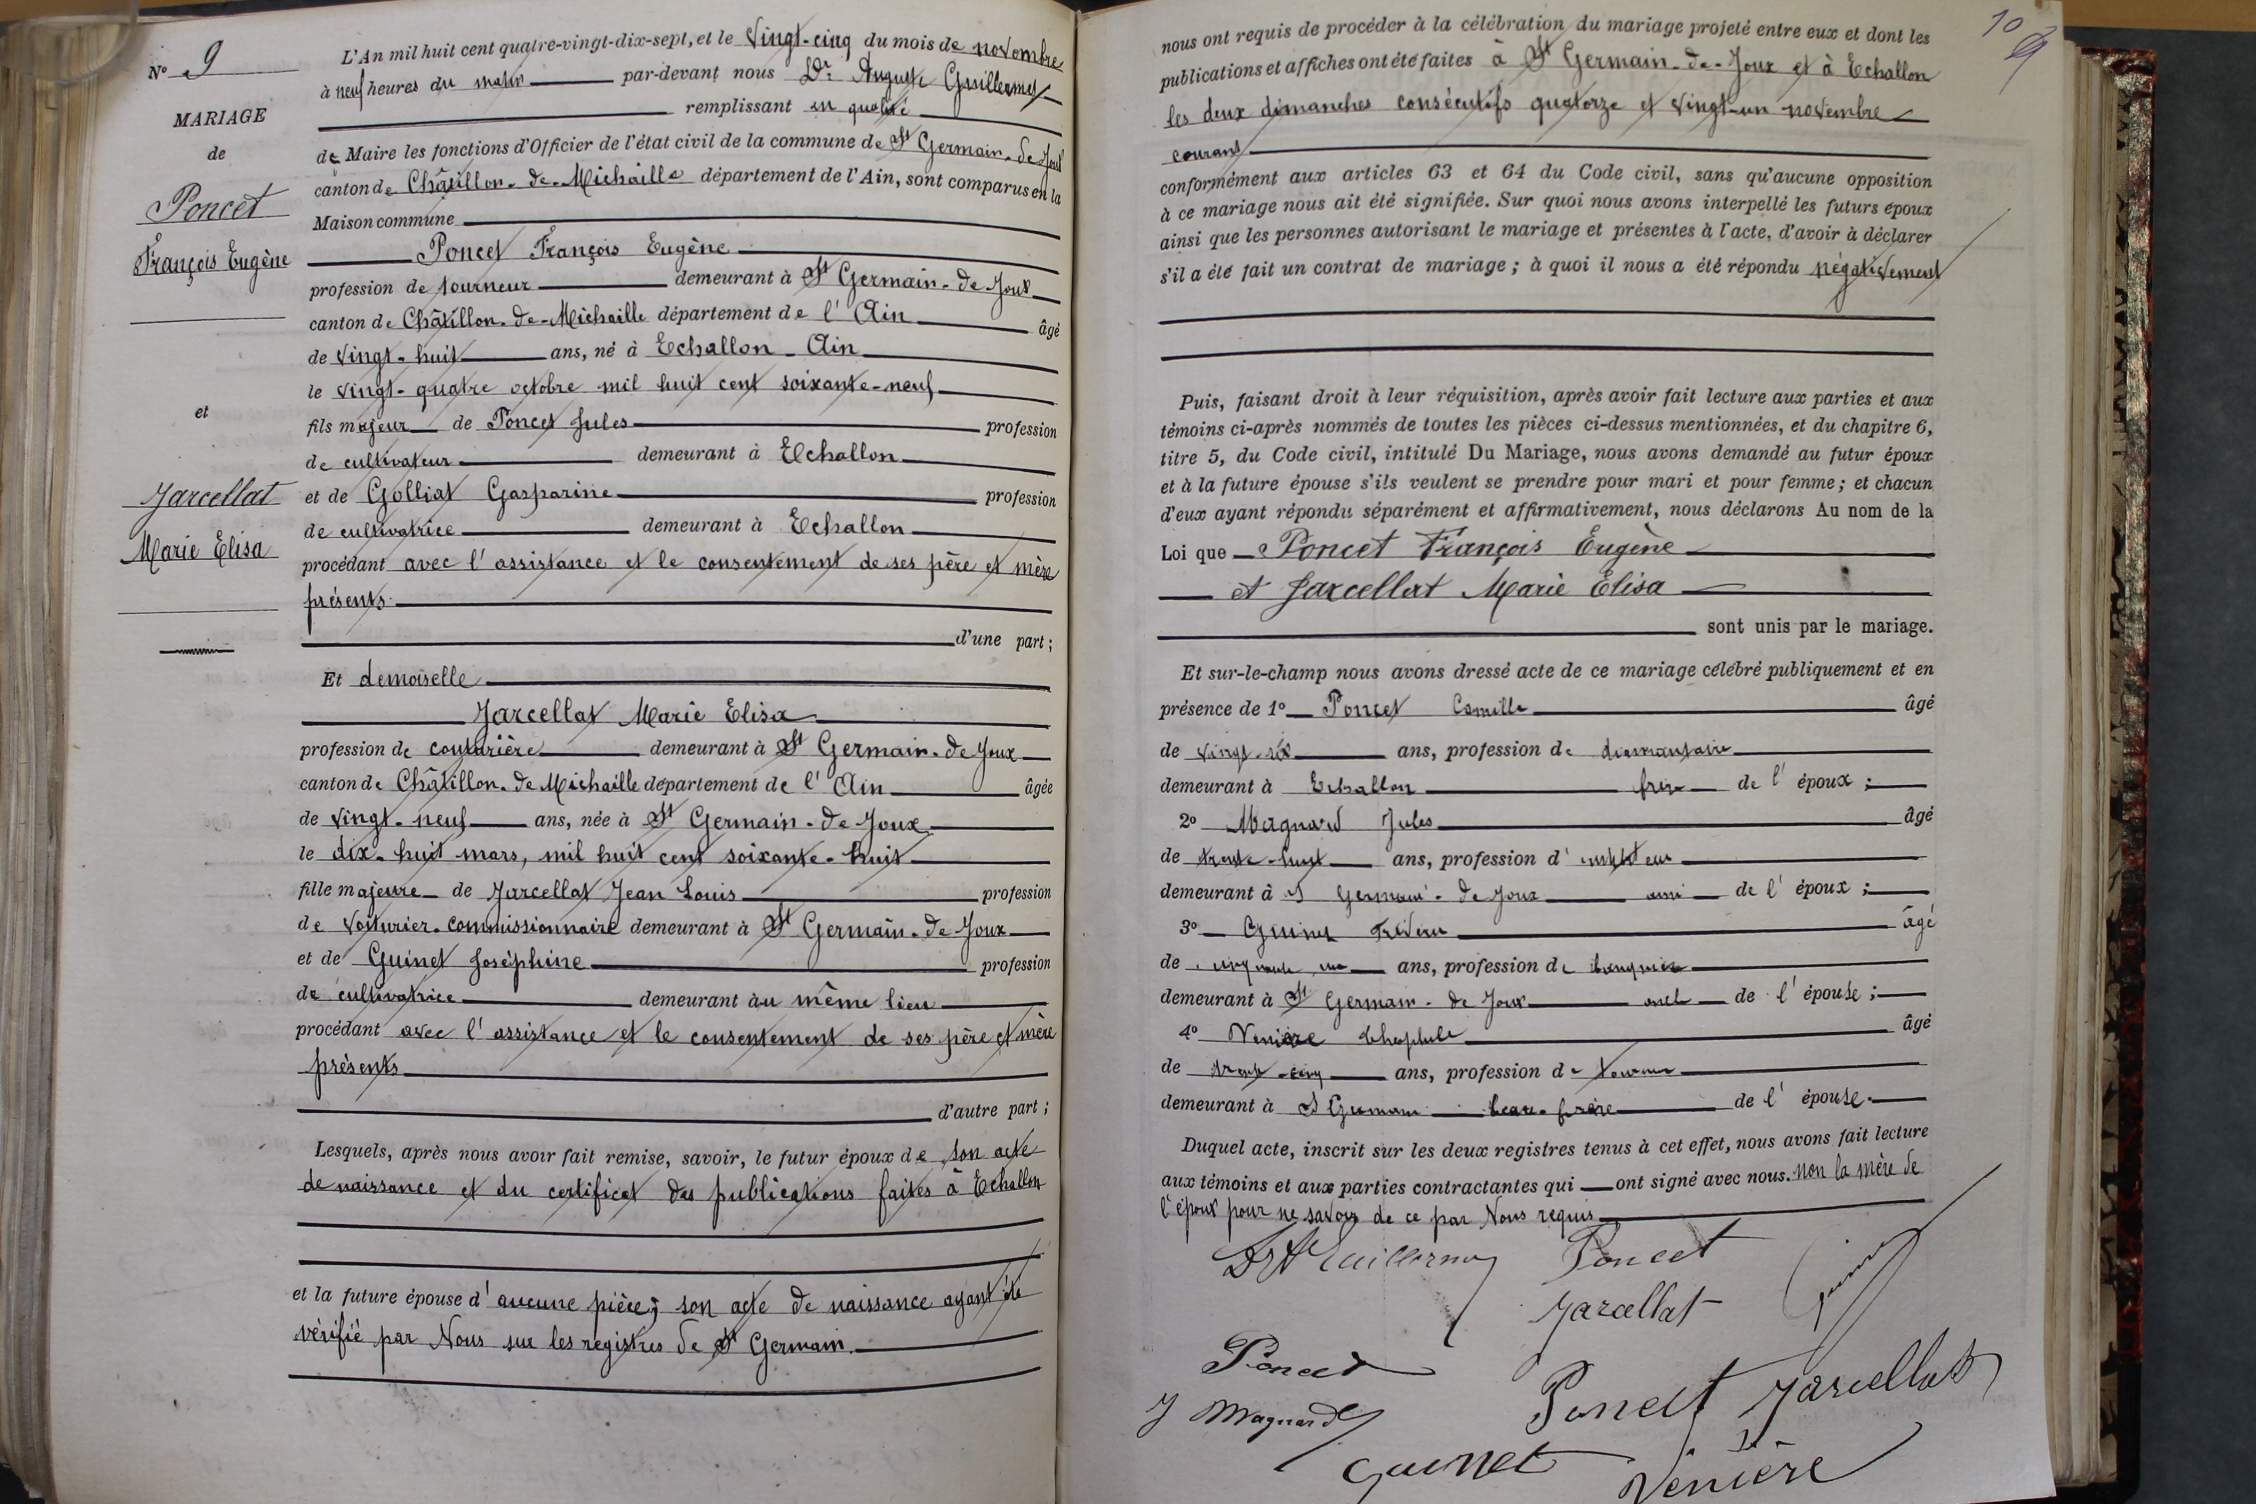 N° 9
MARIAGE
de
Poncet
François Eugène
et
Jarcellat
Marie Elisa
L'An mil huit cent quatre-vingt-dix-sept, et le Vingt-cinq du mois de novembre
à neuf heures du matin par-devant nous Dr. Auguste Guillermet
remplissant en qualité
de Maire les fonctions d'Officier de l'état civil de la commune de St Germain-de-Joux
canton de Châtillon-de-Michaille département de l'Ain, sont comparus en la
Maison commune
Poncet François Eugène
profession de tourneur demeurant à St Germain-de-Joux
canton de Châtillon-de-Michaille département de l'Ain âgé
de vingt-huit ans, né à Echallon-Ain
le vingt-quatre octobre mil huit cent soixante-neuf
fils majeur de Poncet Jules profession
de cultivateur demeurant à Echallon
et de Golliat Gasparine profession
de cultivatrice demeurant à Echallon
procédant avec l'assistance et le consentement de ses père et mère
présents
d'une part;
Et demoiselle
Jarcellat Marie Elisa
profession de couturière demeurant à St Germain-de-Joux
canton de Châtillon-de-Michaille département de l'Ain âgée
de vingt-neuf ans, née à St Germain-de-Joux
le dix-huit mars, mil huit cent soixante-huit
fille majeure de Jarcellat Jean Louis profession
de voiturier-commissionnaire demeurant à St Germain-de-Joux
et de Guinet Joséphine profession
de cultivatrice demeurant au même lieu
procédant avec l'assistance et le consentement de ses père et mère
présents
d'autre part;
Lesquels, après nous avoir fait remise, savoir, le futur époux de son acte
de naissance et du certificat des publications faites à Echallon
et la future épouse d'aucune pièce; son acte de naissance ayant été
vérifié par Nous sur les registres de St Germain.
10
nous ont requis de procéder à la célébration du mariage projeté entre eux et dont les
publications et affiches ont été faites à St Germain-de-Joux et à Echallon
les deux dimanches consécutifs quatorze et vingt-un novembre
courant
conformément aux articles 63 et 64 du Code civil, sans qu'aucune opposition
à ce mariage nous ait été signifiée. Sur quoi nous avons interpellé les futurs époux
ainsi que les personnes autorisant le mariage et présentes à l'acte, d'avoir à déclarer
s'il a été fait un contrat de mariage; à quoi il nous a été répondu négativement
Puis, faisant droit à leur réquisition, après avoir fait lecture aux parties et aux
témoins ci-après nommés de toutes les pièces ci-dessus mentionnées, et du chapitre 6,
titre 5, du Code civil, intitulé Du Mariage, nous avons demandé au futur époux
et à la future épouse s'ils veulent se prendre pour mari et pour femme; et chacun
d'eux ayant répondu séparément et affirmativement, nous déclarons Au nom de la
Loi que Poncet François Eugène
et Jarcellat Marie Elisa
sont unis par le mariage.
Et sur-le-champ nous avons dressé acte de ce mariage célébré publiquement et en
présence de 1° Poncet Camille âgé
de vingt-six ans, profession de diamantaire
demeurant à Echallon frère de l'époux;
2° Magnard Jules âgé
de trente-huit ans, profession d'instituteur
demeurant à St Germain-de-Joux ami de l'époux;
3° Guinet âgé
de cinquante un ans, profession de banquier
demeurant à St Germain-de-Joux oncle de l'épouse;
4° Venière Théophile âgé
de trente-cinq ans, profession de tourneur
demeurant à St Germain beau-frère de l'épouse.
Duquel acte, inscrit sur les deux registres tenus à cet effet, nous avons fait lecture
aux témoins et aux parties contractantes qui ont signé avec nous. non la mère de
l'époux pour ne savoir de ce par Nous requis
Dr A Guillermet Poncet Guinet
Jarcellat
Poncet
J Magnard Poncet Jarcellat
Guinet Venière